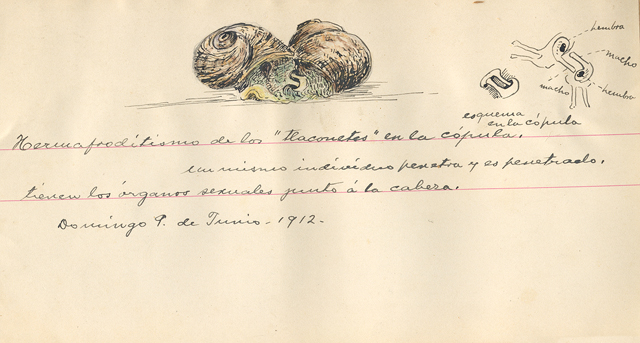 hembra
macho
macho
hembra
esquema
en la cópula
Hermafroditismo de los "tlaconetes" en la cópula.
un mismo individuo penetra y es penetrado.
tienen los órganos sexuales junto á la cabeza.
Domingo 9. de Junio - 1912 -